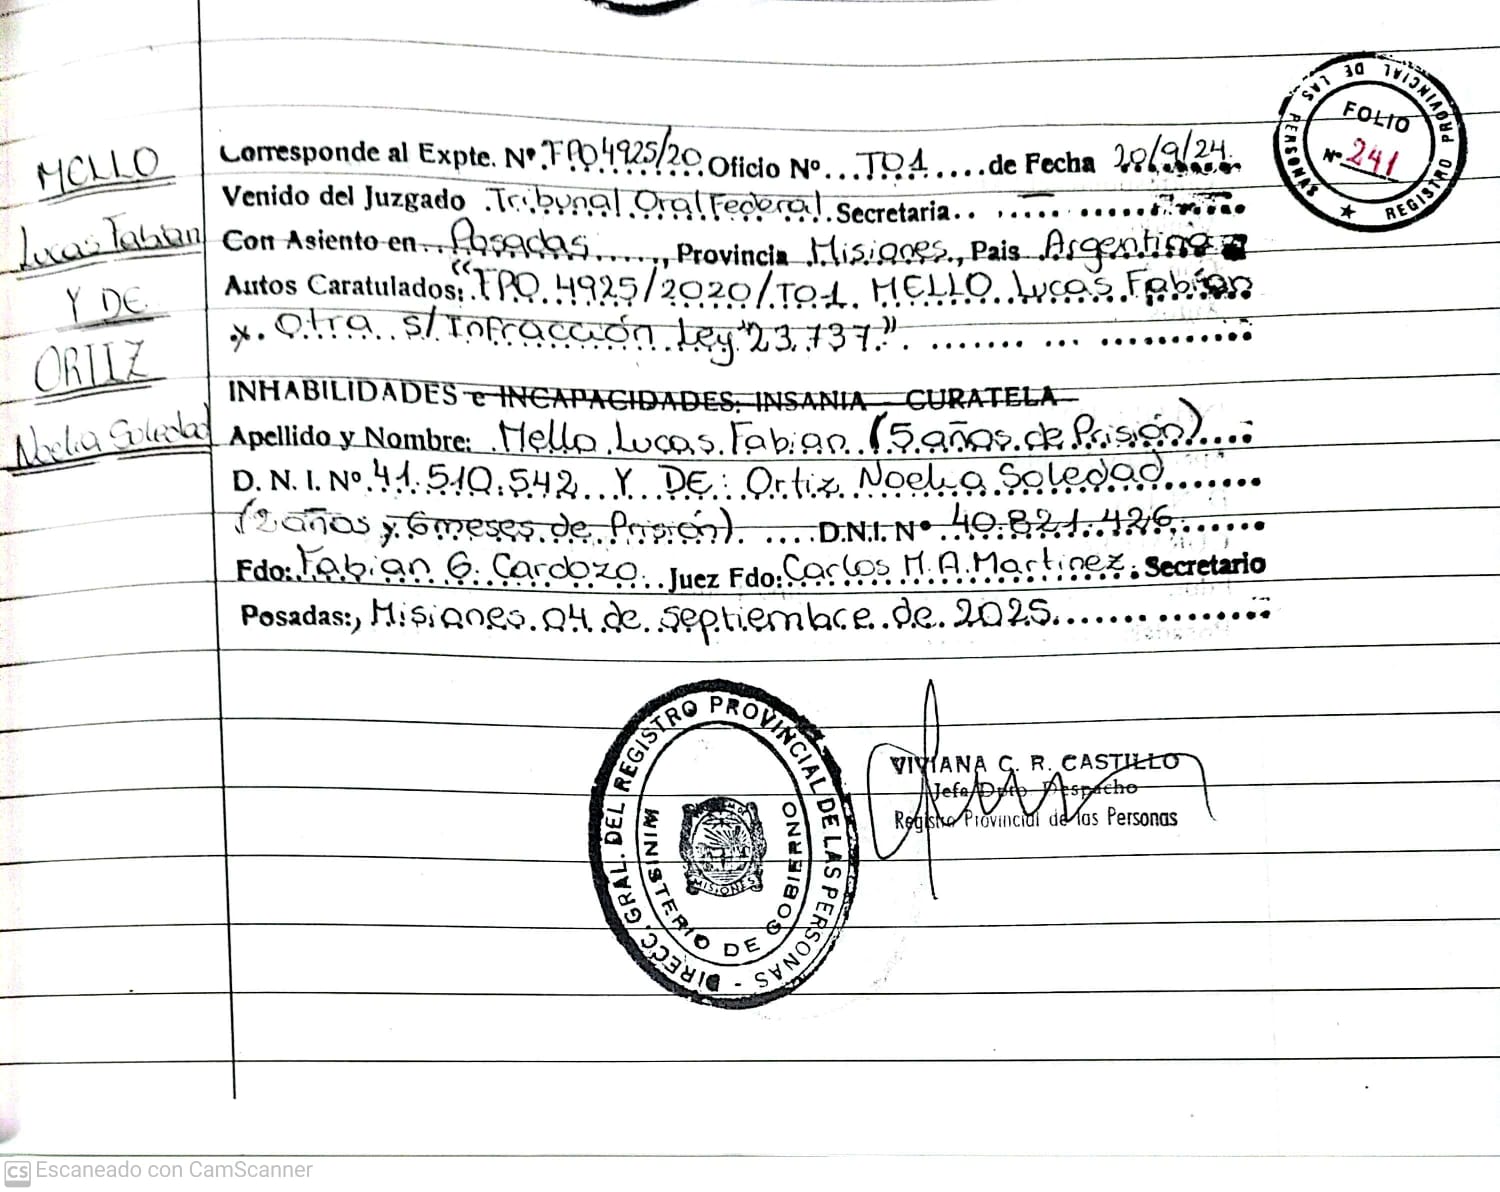 REGISTRO PROVINCIAL DE LAS PERSONAS
FOLIO
Nº 241
MELLO
Lucas Fabian
Y DE
ORTIZ
Noelia Soledad
Corresponde al Expte. Nº FPO4925/20 Oficio Nº...TO1....de Fecha 20/9/24.
Venido del Juzgado .Tribunal Oral Federal. Secretaria..
Con Asiento en...Posadas......, Provincia Misiones., Pais Argentina
Autos Caratulados: "FPO 4925/2020/TO1. MELLO Lucas Fabian
x. Otra s/Infracción Ley 23.737".
INHABILIDADES e INCAPACIDADES: INSANIA - CURATELA
Apellido y Nombre: .Mello Lucas Fabian (5 años de Prisión)....
D. N. I. Nº 41.510.542 Y DE: Ortiz Noelia Soledad
(2 años y 6 meses de Prisión). ....D.N.I. Nº 40.821.426
Fdo: Fabian G. Cardozo.. Juez Fdo: Carlos M. A. Martinez. Secretario
Posadas:, Misiones 04 de septiembre de 2025.
DIRECC. GRAL. DEL REGISTRO PROVINCIAL DE LAS PERSONAS -
MINISTERIO DE GOBIERNO
MISIONES
VIVIANA C. R. CASTILLO
Jefa Dpto. Despacho
Registro Provincial de las Personas
CS Escaneado con CamScanner